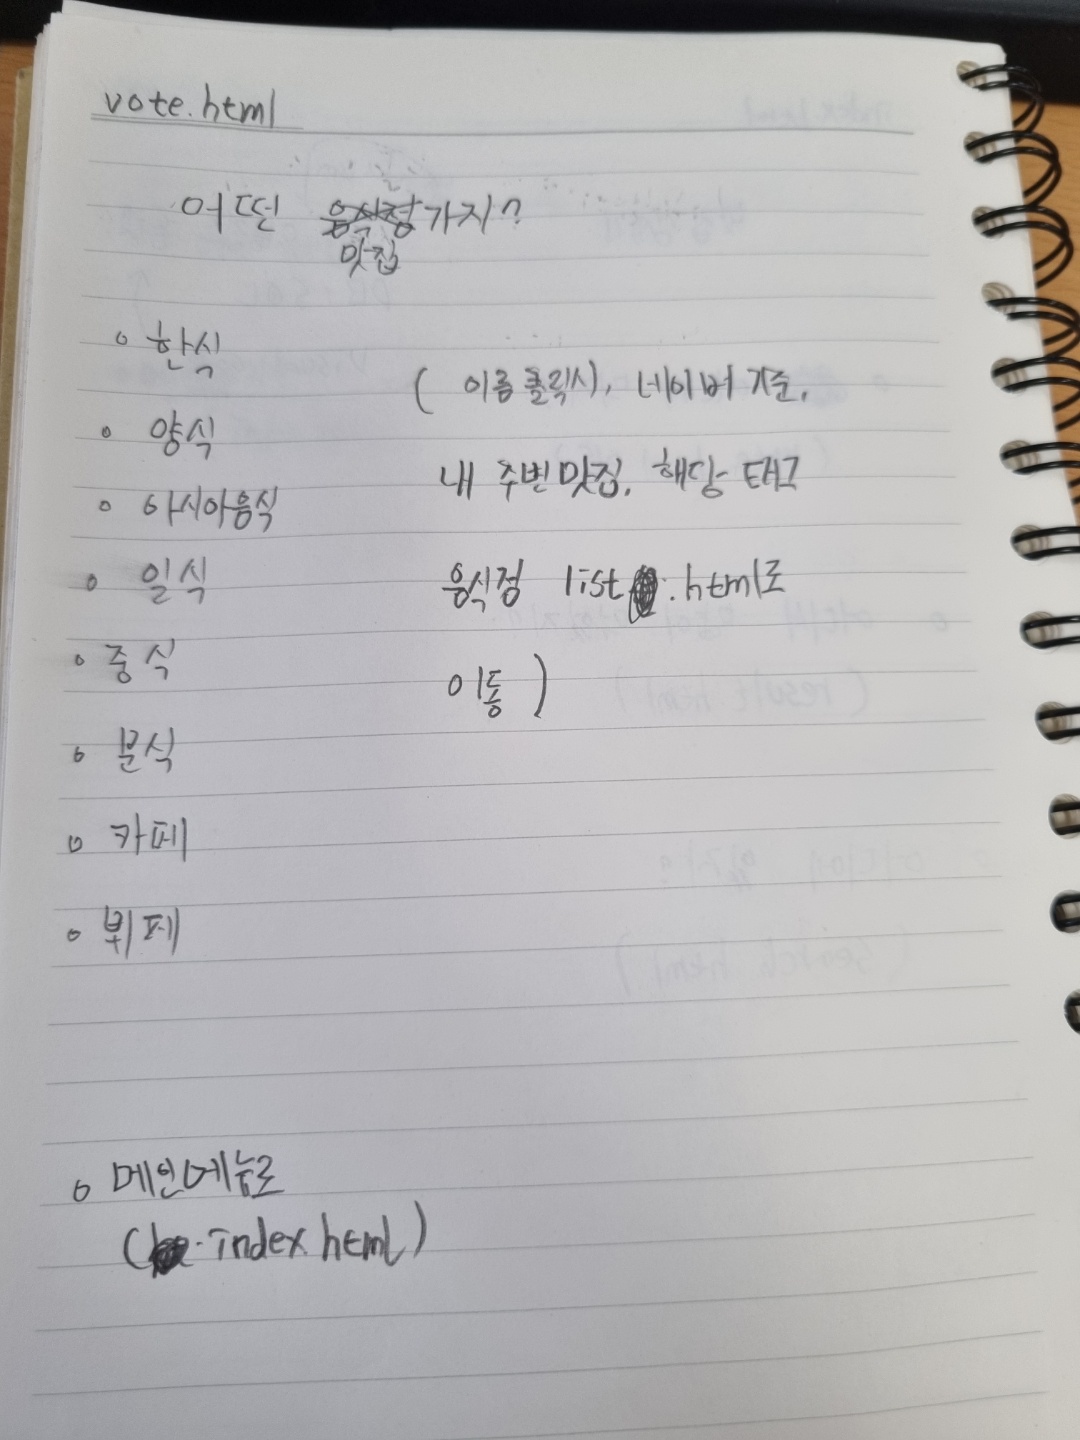 vote.html
어떤 음식점 가지?
맛집
한식
양식
아시아음식
일식
중식
분식
카페
뷔페
( 이름 클릭시, 네이버 기준,
내 주변맛집, 해당 태그
음식점 list .html로
이동 )
메인메뉴로
( . index.html)